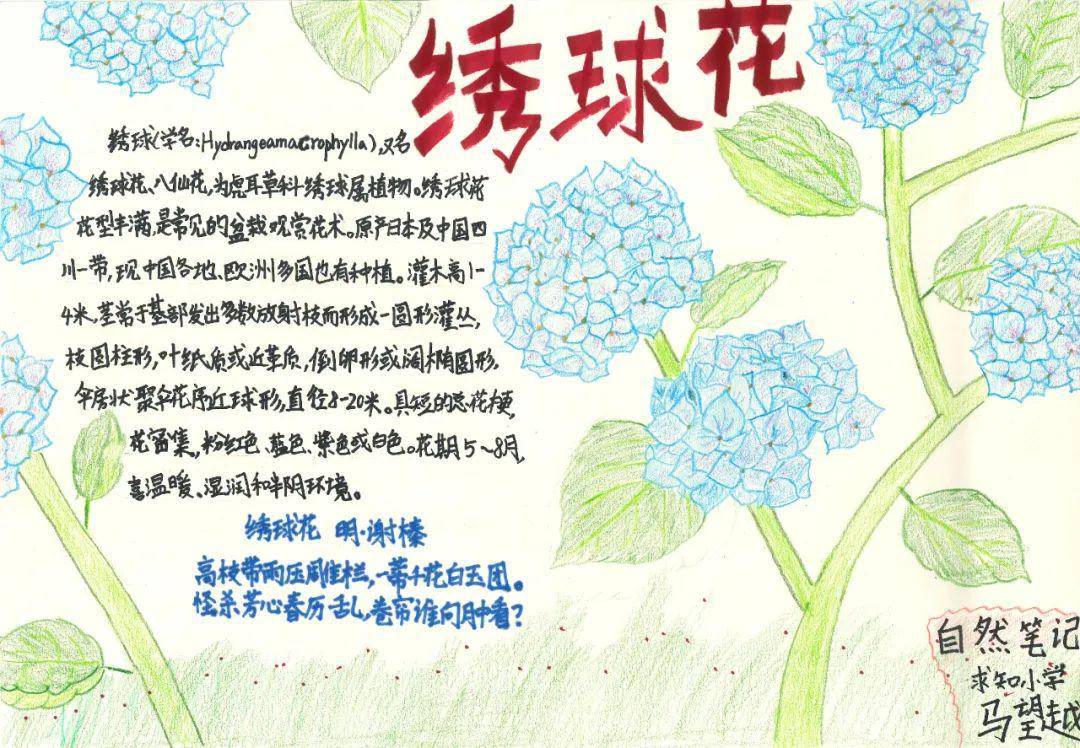 绣球花
绣球(学名:Hydrangeamacrophylla),又名
绣球花、八仙花,为虎耳草科绣球属植物。绣球花
花型丰满,是常见的盆栽观赏花木。原产日本及中国四
川一带,现中国各地、欧洲多国也有种植。灌木高1-
4米,茎常于基部发出多数放射枝而形成一圆形灌丛,
枝圆柱形,叶纸质或近革质,倒卵形或阔椭圆形,
伞房状聚伞花序近球形,直径8-20米。具短的总花梗,
花密集,粉红色、蓝色、紫色或白色。花期5~8月,
喜温暖、湿润和半阴环境。
绣球花 明·谢榛
高枝带雨压雕栏,一蒂千花白玉团。
怪杀芳心春历乱,卷帘谁向月中看?
自然笔记
求知小学
马望越